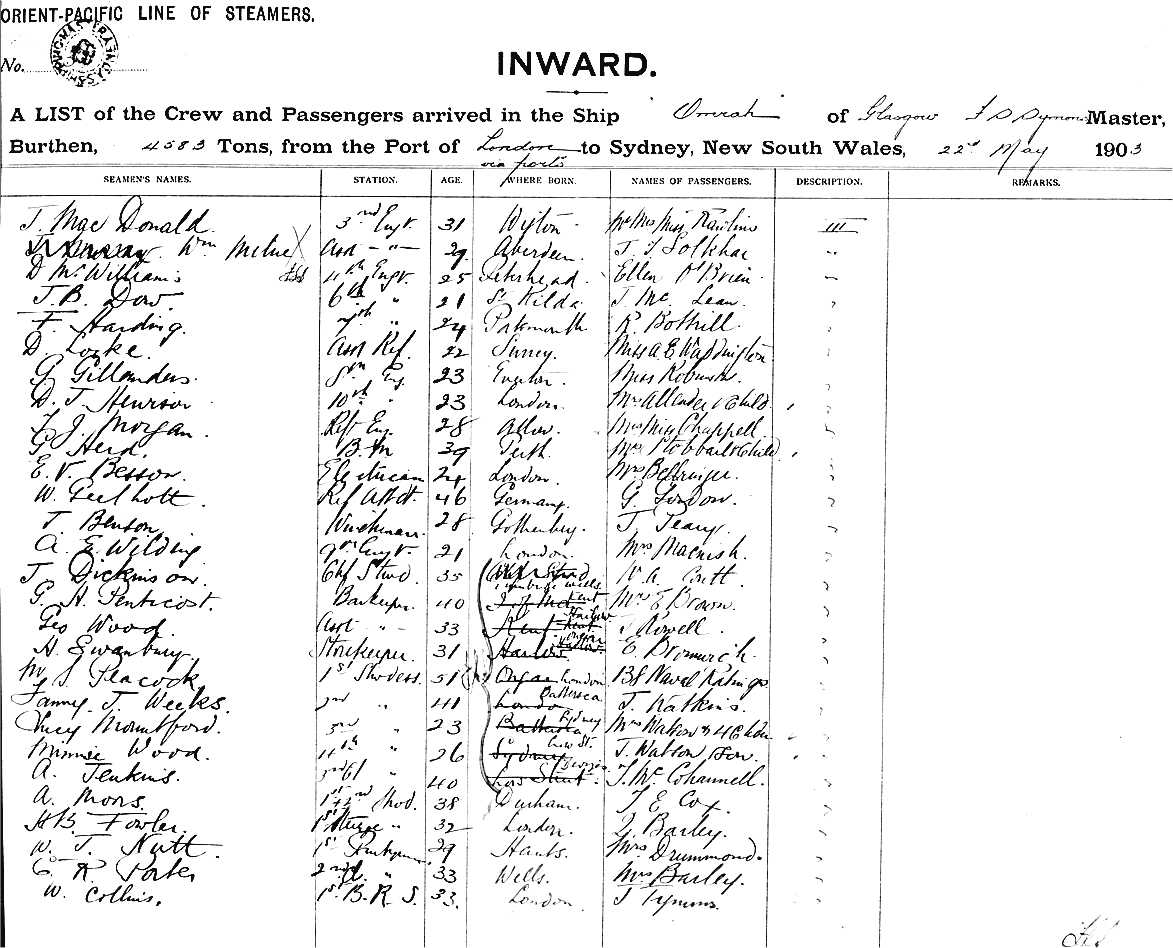 ORIENT-PACIFIC LINE OF STEAMERS.
No.
INWARD.
A LIST of the Crew and Passengers arrived in the Ship Omrah of Glasgow F S Symons Master,
Burthen, 4583 Tons, from the Port of London to Sydney, New South Wales, 22d May 1903
via ports
SEAMEN'S NAMES. STATION. AGE. WHERE BORN. NAMES OF PASSENGERS. DESCRIPTION. REMARKS.
J. Mac Donald 3rd Engr. 31 Mr Mrs Miss Rawlins III
Wm Milne Asst -"- 29 Aberdeen. "
D McWilliams 4th Engr. 25 Peterhead Ellen O'Brien
J. B. Dow. 6th " 21 St Kilda J. Mc Lean
F. Harding. 7th " 24 Portsmouth R. Bothill.
D Locke. Asst Ref. 22 Surrey. Miss A E Waddington
G Gillanders. 8th Eng. 23 Everton. Miss Robinson.
D. T. Henrison 10th " 23 London. Mrs Allender & Child
J. Morgan. Ref Eng. 28 Mrs Miss Chappell
G. Herd. B.M 39 Perth. Mrs Stobbart & Child
E. V. Besson. Electrician 24 London. Mrs Bellringer
W. Geelhott Ref Asst. 46 Germany. G. London.
T Benson Winchman. 28 Gothenburg. J. Leary.
A. E. Wilding 9th Engr. 21 London. Mrs Macnish.
J. Dickinson. Chf Stwd 35 W. A.
Tunbridge Wells.
G. H. Penticost. Barkeeper 40 I of Man Kent Mrs E Brown.
Geo Wood. Asst -"- 33 Kent Harlow J Rowell
H. Swanbury. Storekeeper. 31 Harlow E Bromwich
M. S Peacock 1st Stwdess. 51 Ongar London 138 Naval Ratings
Fanny J. Weeks. 2nd " 41 London Battersea J. Watkins.
Lucy Mountford. 3rd " 23 Battersea Sydney Mrs Watson & 4 Chdn
Minnie Wood 4th " 26 Sydney Low St. J. Watson Senr.
A. Jenkins. 2nd Cl " 40 Low Street J. Mc Cohannell.
A. Moors. 1st & 2nd Stwd. 38 Durham. J. E Cox.
H B. Fowler. 1st " 32 London. G. Barley.
W. J. Nutt. 1st 29 Hants. Mrs Drummond.
C. R Porter 2nd " 33 Wells. Mrs Barley.
W. Collins. 1st B. R. S. 33. London. J Tymms.